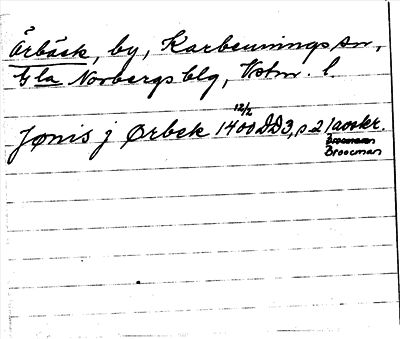 Örbäck, by, Karbennings sn,
Gla Norbergs blg, Vstm. l.
12/2
Jønis j Ørbek 1400 DD3, p 2 1 avskr.
Broocman
Broocman